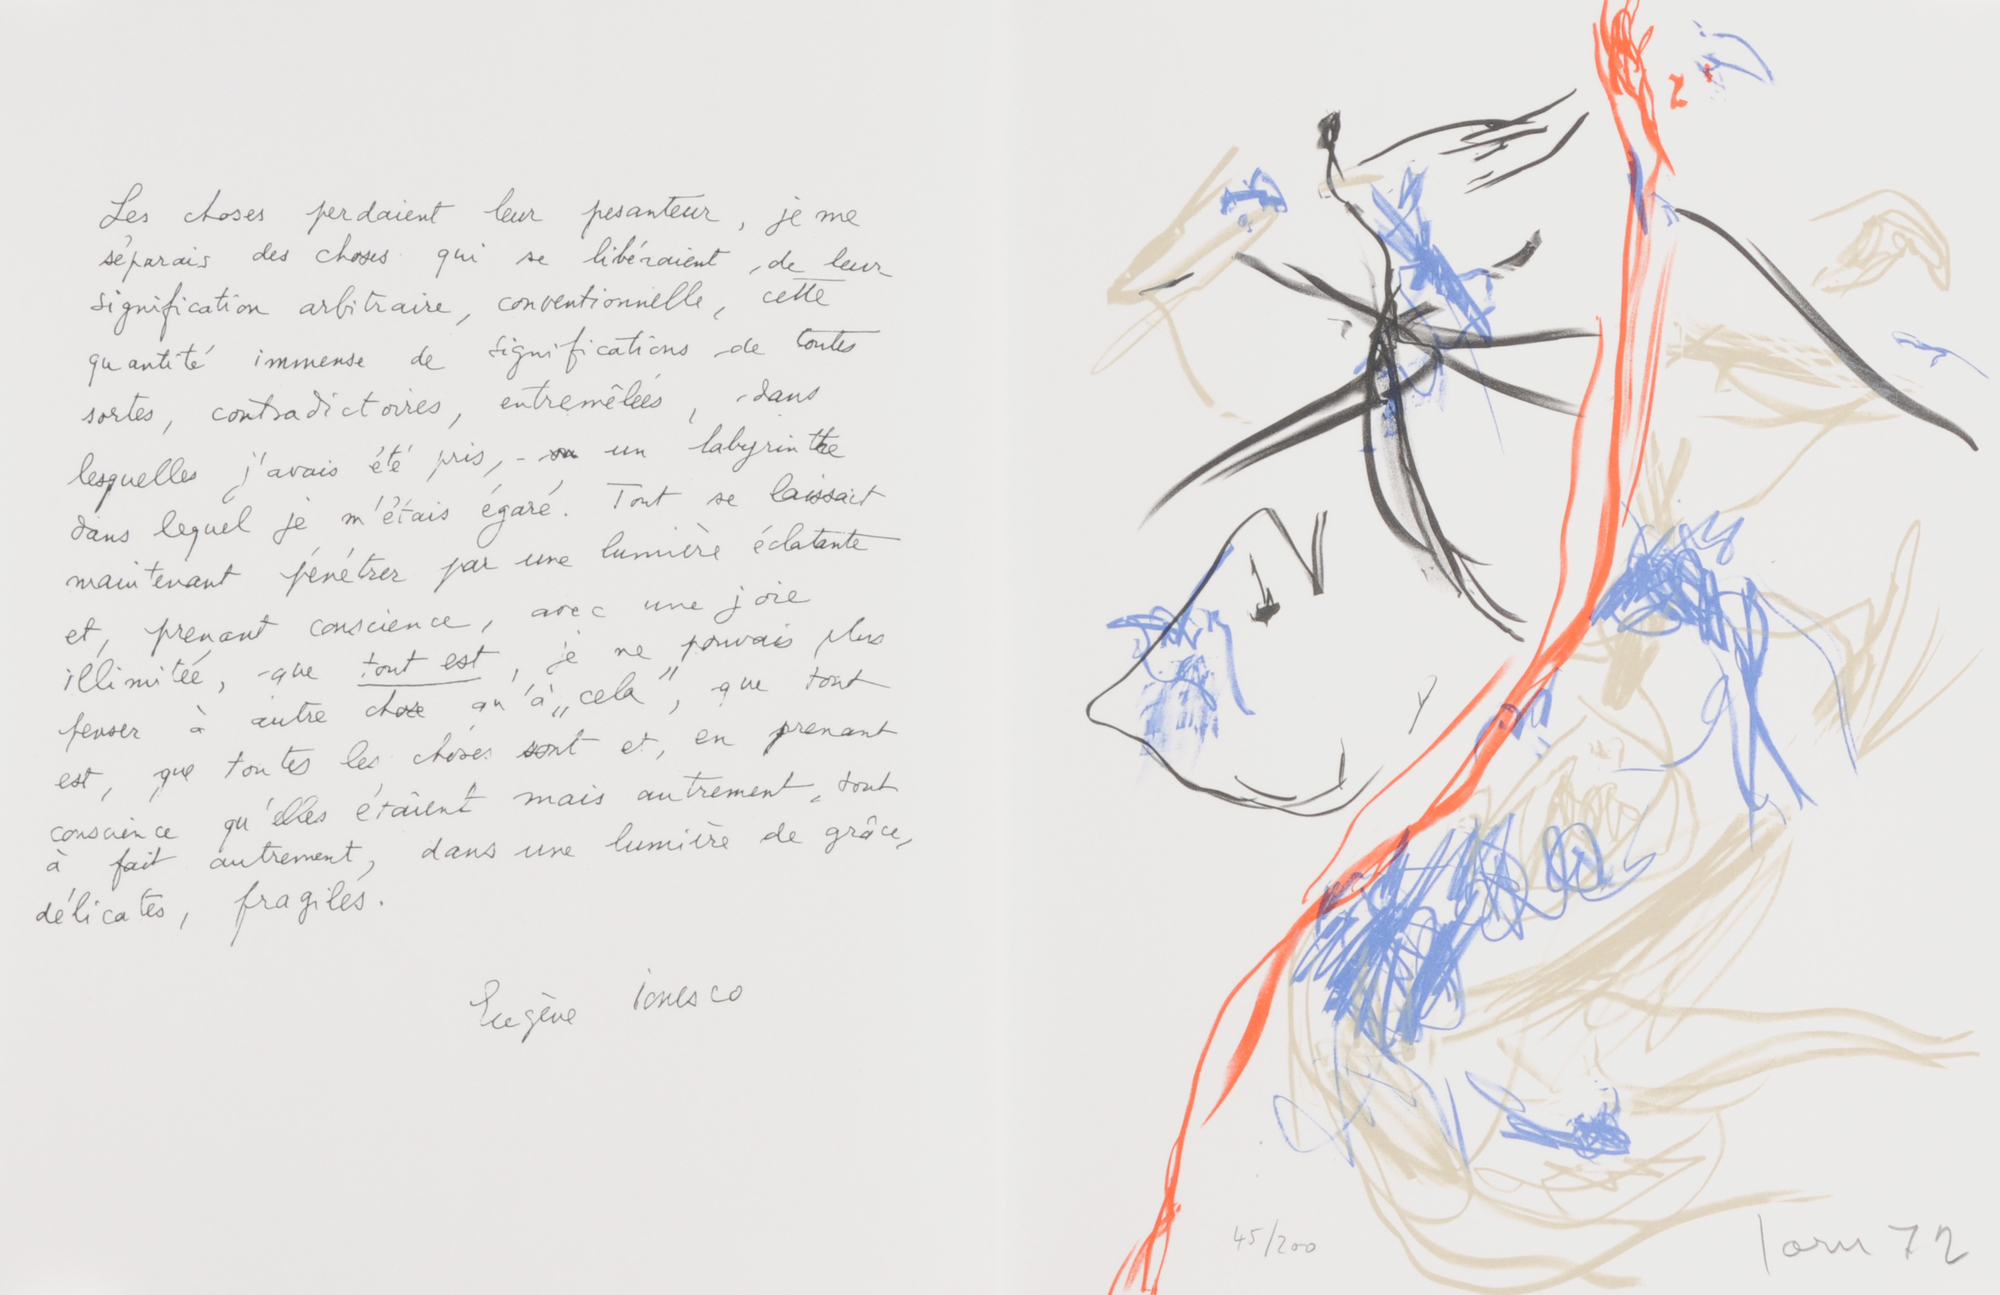 Les choses perdaient leur pesanteur, je me
séparais des choses qui se libéraient, de leur
signification arbitraire, conventionnelle, cette
quantité immense de significations de toutes
sortes, contradictoires, entremêlées, dans
lesquelles j'avais été pris, un labyrinthe
dans lequel je m'étais égaré. Tout se laissait
maintenant pénétrer par une lumière éclatante
et, prenant conscience, avec une joie
illimitée, que tout est, je ne pouvais plus
penser à autre chose qu'à „cela", que tout
est, que toutes les choses sont et, en prenant
conscience qu'elles étaient mais autrement, tout
à fait autrement, dans une lumière de grâce,
délicates, fragiles.
Eugène Ionesco
45/200
72